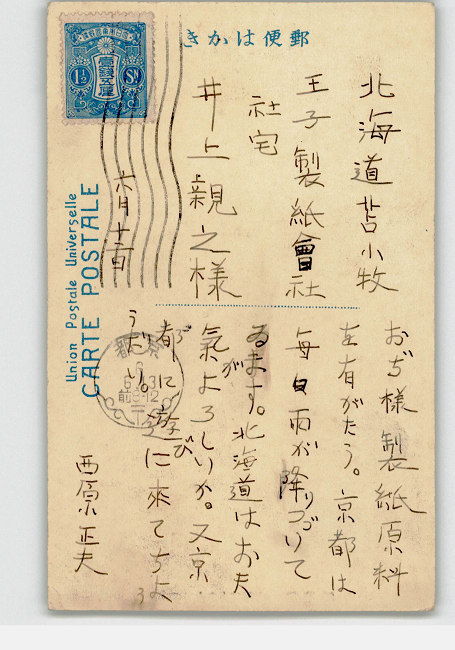 郵便はかき
北海道苫小牧
王子製紙會社
社宅
井上親之様
六月十一日
おぢ様製紙原料
を有がたう。京都は
毎日雨が降りつゞいて
ゐます。北海道はお天
氣がよろしいか。又京
都に遊びに來てちよ
うだい。
西原正夫
大日本帝國郵便
壹錢五厘
1½ SN
Union Postale Universelle
CARTE POSTALE
京都
前8-12